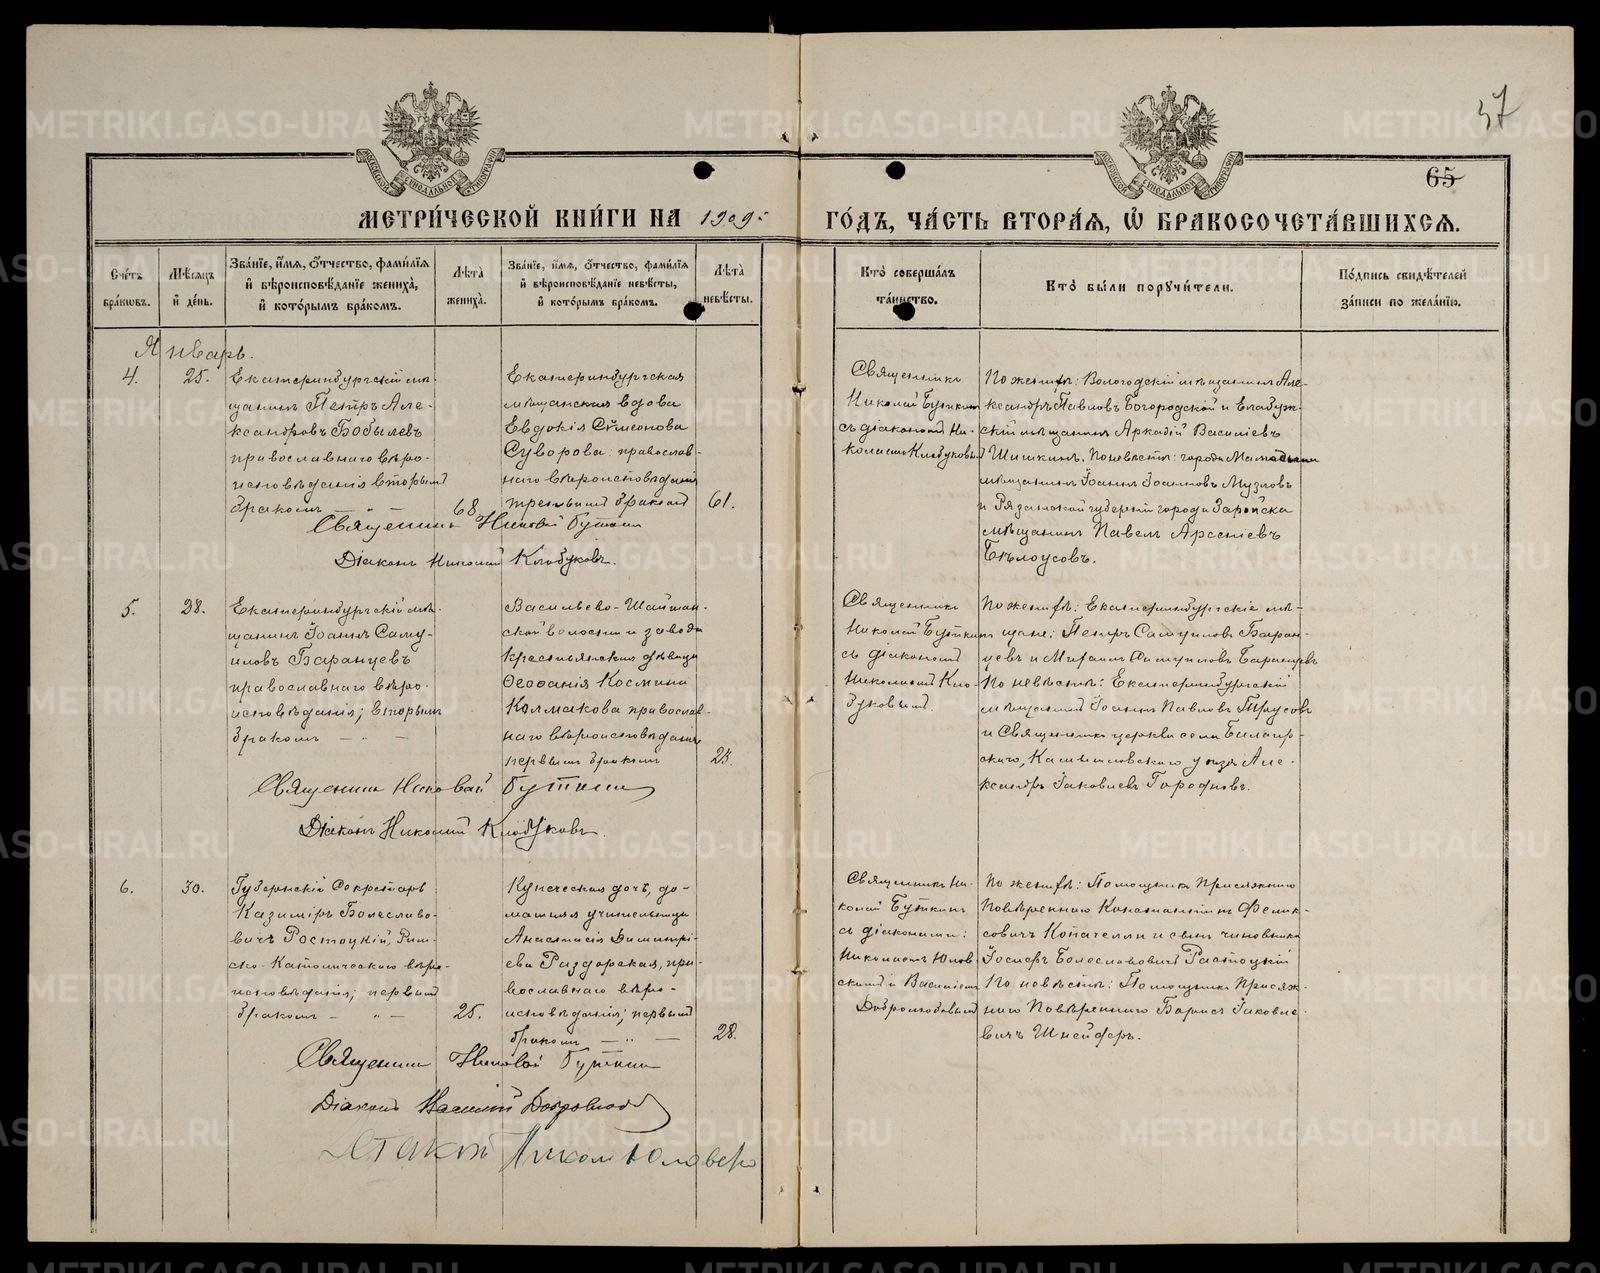 37
65
МЕТРИ́ЧЕСКОЙ КНИ́ГИ НА 1909 ГО́ДЪ, ЧА́СТЬ ВТОРА́Я, Ѿ БРАКОСОЧЕТА́ВШИХСЯ.
Сче́тъ бра́ковъ.
Мѣ́сяцъ и҆ де́нь.
Зва́нїе, и҆́мя, ѻ҆́тчество, фами́лїя
и҆ вѣроисповѣ́данїе жениха̀,
и҆ кото́рымъ бра́комъ.
Лѣта̀ жениха̀.
Зва́нїе, и҆́мя, ѻ҆́тчество, фами́лїя
и҆ вѣроисповѣ́данїе невѣ́сты,
и҆ кото́рымъ бра́комъ.
Лѣта̀ невѣ́сты.
Кто̀ соверша́лъ
та́инство.
Кто̀ бы́ли порꙋчи́тели.
По́дпись свидѣ́телей
за́писи по жела́нїю.
Январь.
4.
25.
Екатеринбургскій мѣ-
щанинъ Петръ Але-
ксандровъ Бобылевъ
православнаго вѣро-
исповѣданія вторымъ
бракомъ — „ —
68.
Екатеринбургская
мѣщанская вдова
Евдокія Сѵмеонова
Суворова православ-
наго вѣроисповѣданія
третьимъ бракомъ
61.
Священникъ
Николай Буткинъ
съ діакономъ Ни-
колаемъ Клобуковымъ
По женихѣ: Вологодскій мѣщанинъ Але-
ксандръ Павловъ Богородской и Елабуж-
скій мѣщанинъ Аркадій Василіевъ
Шишкинъ. По невѣстѣ: города
мѣщанинъ Іоаннъ Іоанновъ Музловъ
и Рязанской губерніи города Зарайска
мѣщанинъ Павелъ Арсеніевъ
Бѣлоусовъ.
Священникъ Николай Буткинъ
Діаконъ Николай Клобуковъ.
5.
28.
Екатеринбургскій мѣ-
щанинъ Іоаннъ Саму-
иловъ Баранцевъ
православнаго вѣро-
исповѣданія; вторымъ
бракомъ — „ —
Васильево-Шайтан-
ской волости и завода
крестьянская дѣвица
Ѳеофанія Космина
Колмакова православ-
наго вѣроисповѣданія
первымъ бракомъ
23.
Священникъ
Николай Буткинъ
съ діакономъ
Николаемъ Кло-
буковымъ.
По женихѣ: Екатеринбургскіе мѣ-
щане: Петръ Самуиловъ Баран-
цевъ и Михаилъ Самуиловъ Баранцевъ
По невѣстѣ: Екатеринбургскій
мѣщанинъ Іоаннъ Павловъ
и Священникъ церкви села
скаго, Камышловскаго уѣзда Але-
ксандръ Іаковлевъ Городновъ.
Священникъ Николай Буткинъ
Діаконъ Николай Клобуковъ.
6.
30.
Губернскій Секретарь
Казиміръ Болеславо-
вичъ Ростоцкій, Рим-
ско-Католическаго вѣро-
исповѣданія; первымъ
бракомъ — „ —
25.
Купеческая дочь, до-
машняя учительница
Анастасія Димитрі-
ева Раздорская, пра-
вославнаго вѣро-
исповѣданія; первымъ
бракомъ — „ —
28.
Священникъ Ни-
колай Буткинъ
съ діаконами:
Николаемъ Юлов-
скимъ и Василіемъ
Добролюбовымъ
По женихѣ: Помощникъ Присяжнаго
Повѣреннаго Константинъ Фелик-
совичъ Копачелли и сынъ чиновника
Іосифъ Болеславовичъ Растоцкій
По невѣстѣ: Помощникъ Присяж-
наго Повѣреннаго Борисъ Іаковле-
вичъ Шнейдеръ.
Священникъ Николай Буткинъ
Діаконъ Василій Добролюбовъ
Діаконъ Николай